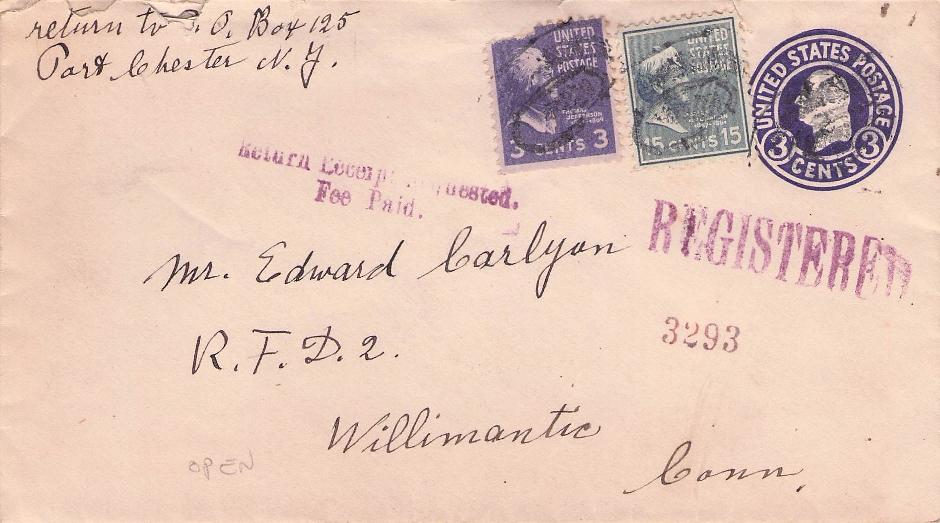 return to P. O. Box 125
Port Chester N. Y.
UNITED STATES POSTAGE
3 CENTS 3
UNITED STATES POSTAGE
15 CENTS 15
UNITED STATES POSTAGE
3 CENTS 3
Return Receipt Requested.
Fee Paid.
REGISTERED
3293
Mr. Edward Carlyon
R. F. D. 2.
Willimantic
Conn.
OPEN